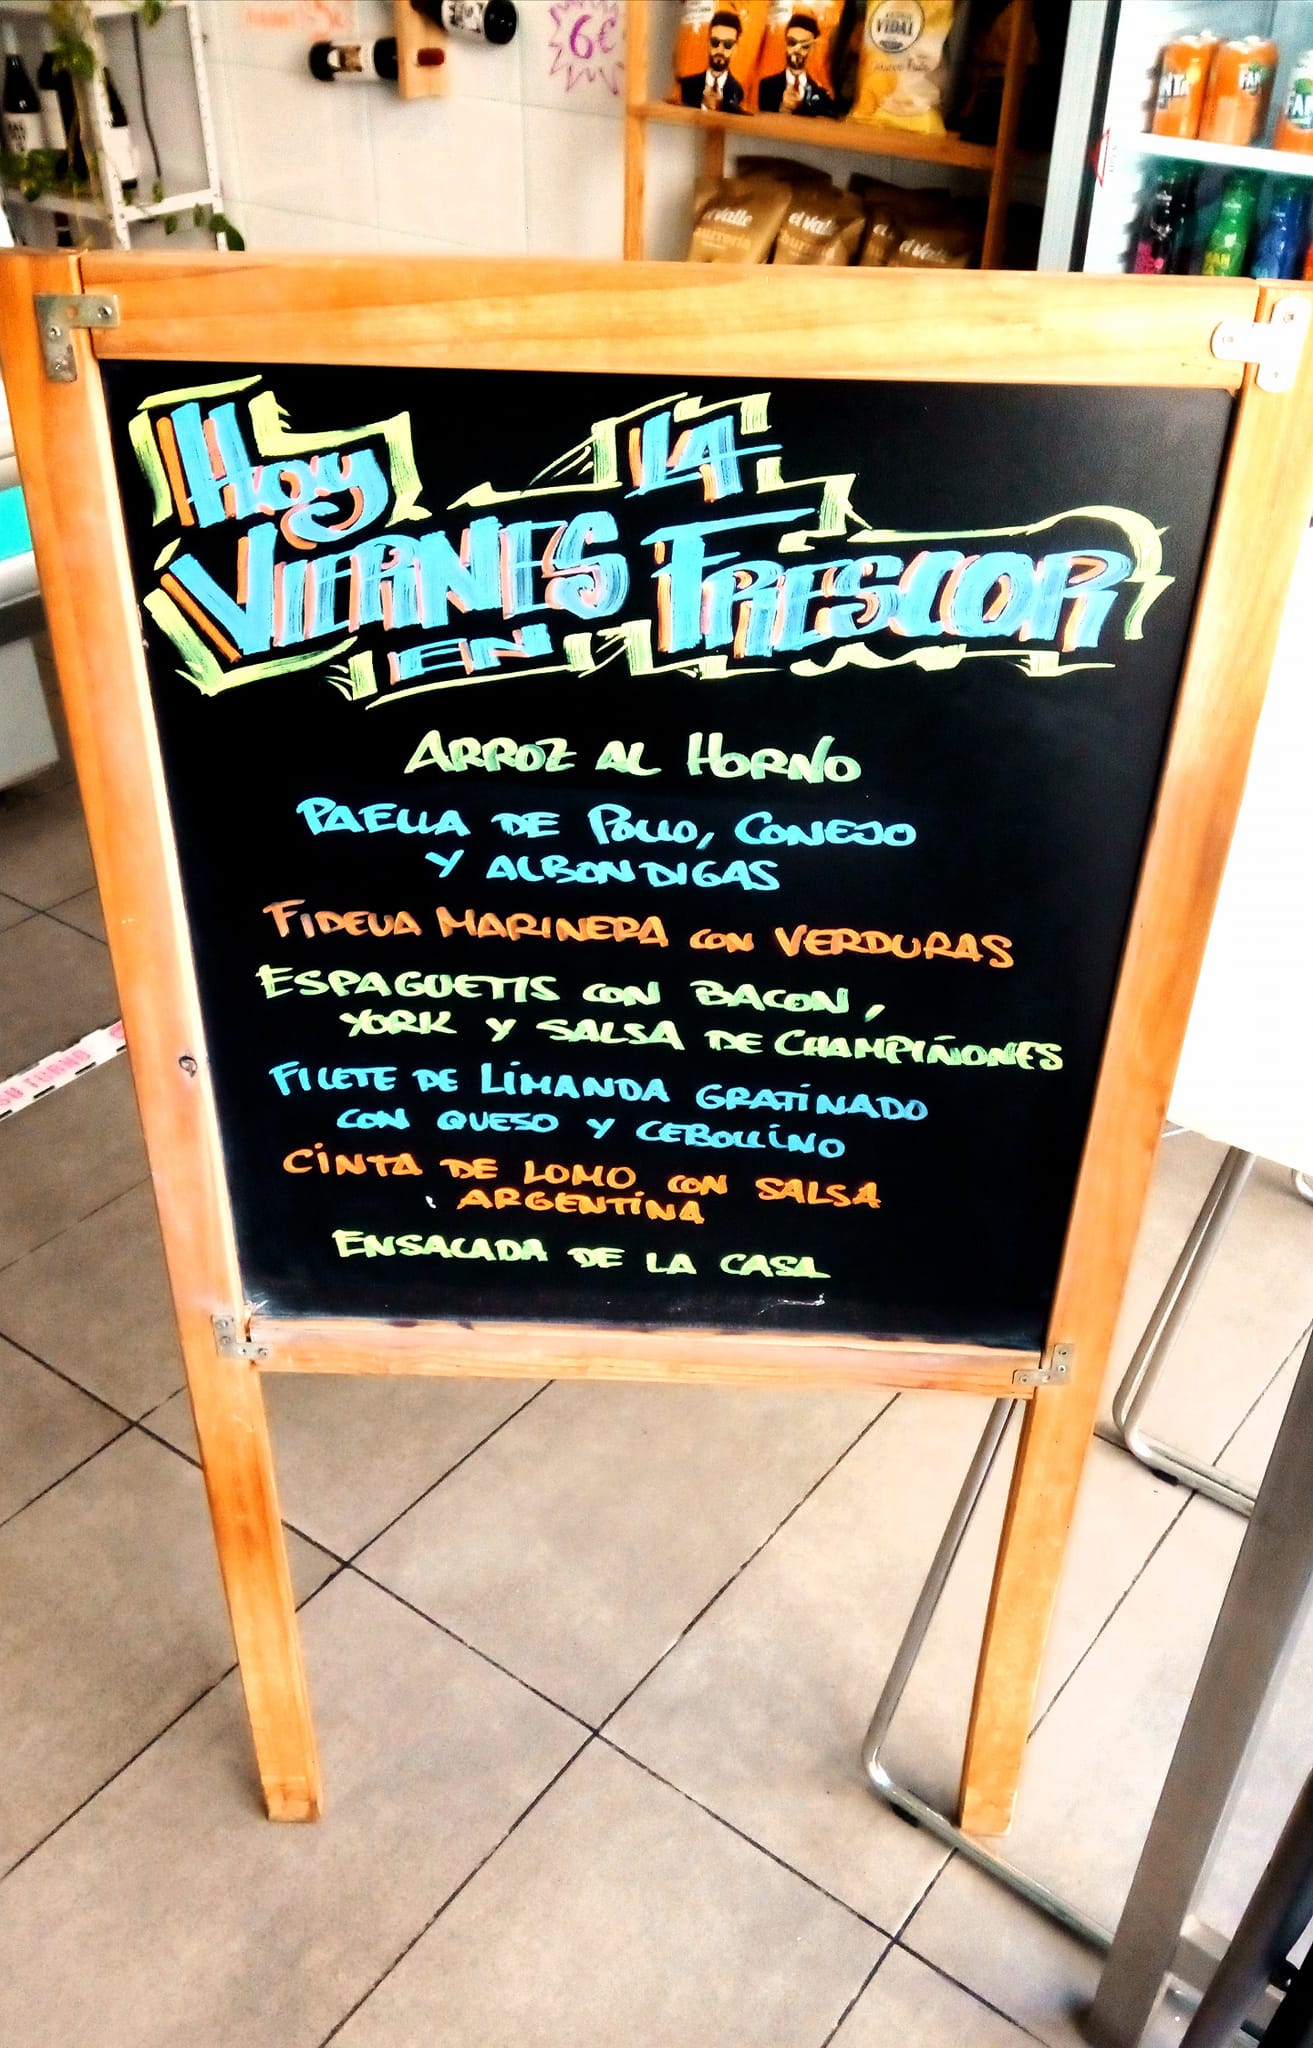 6€
VIDAL
el Valle
el Valle
el Valle
FANTA
Hoy
VIERNES
EN
LA
FRESCOR
ARROZ AL HORNO
PAELLA DE POLLO, CONEJO
Y ALBONDIGAS
FIDEUA MARINERA CON VERDURAS
ESPAGUETIS CON BACON,
YORK Y SALSA DE CHAMPIÑONES
FILETE DE LIMANDA GRATINADO
CON QUESO Y CEBOLLINO
CINTA DE LOMO CON SALSA
ARGENTINA
ENSALADA DE LA CASA